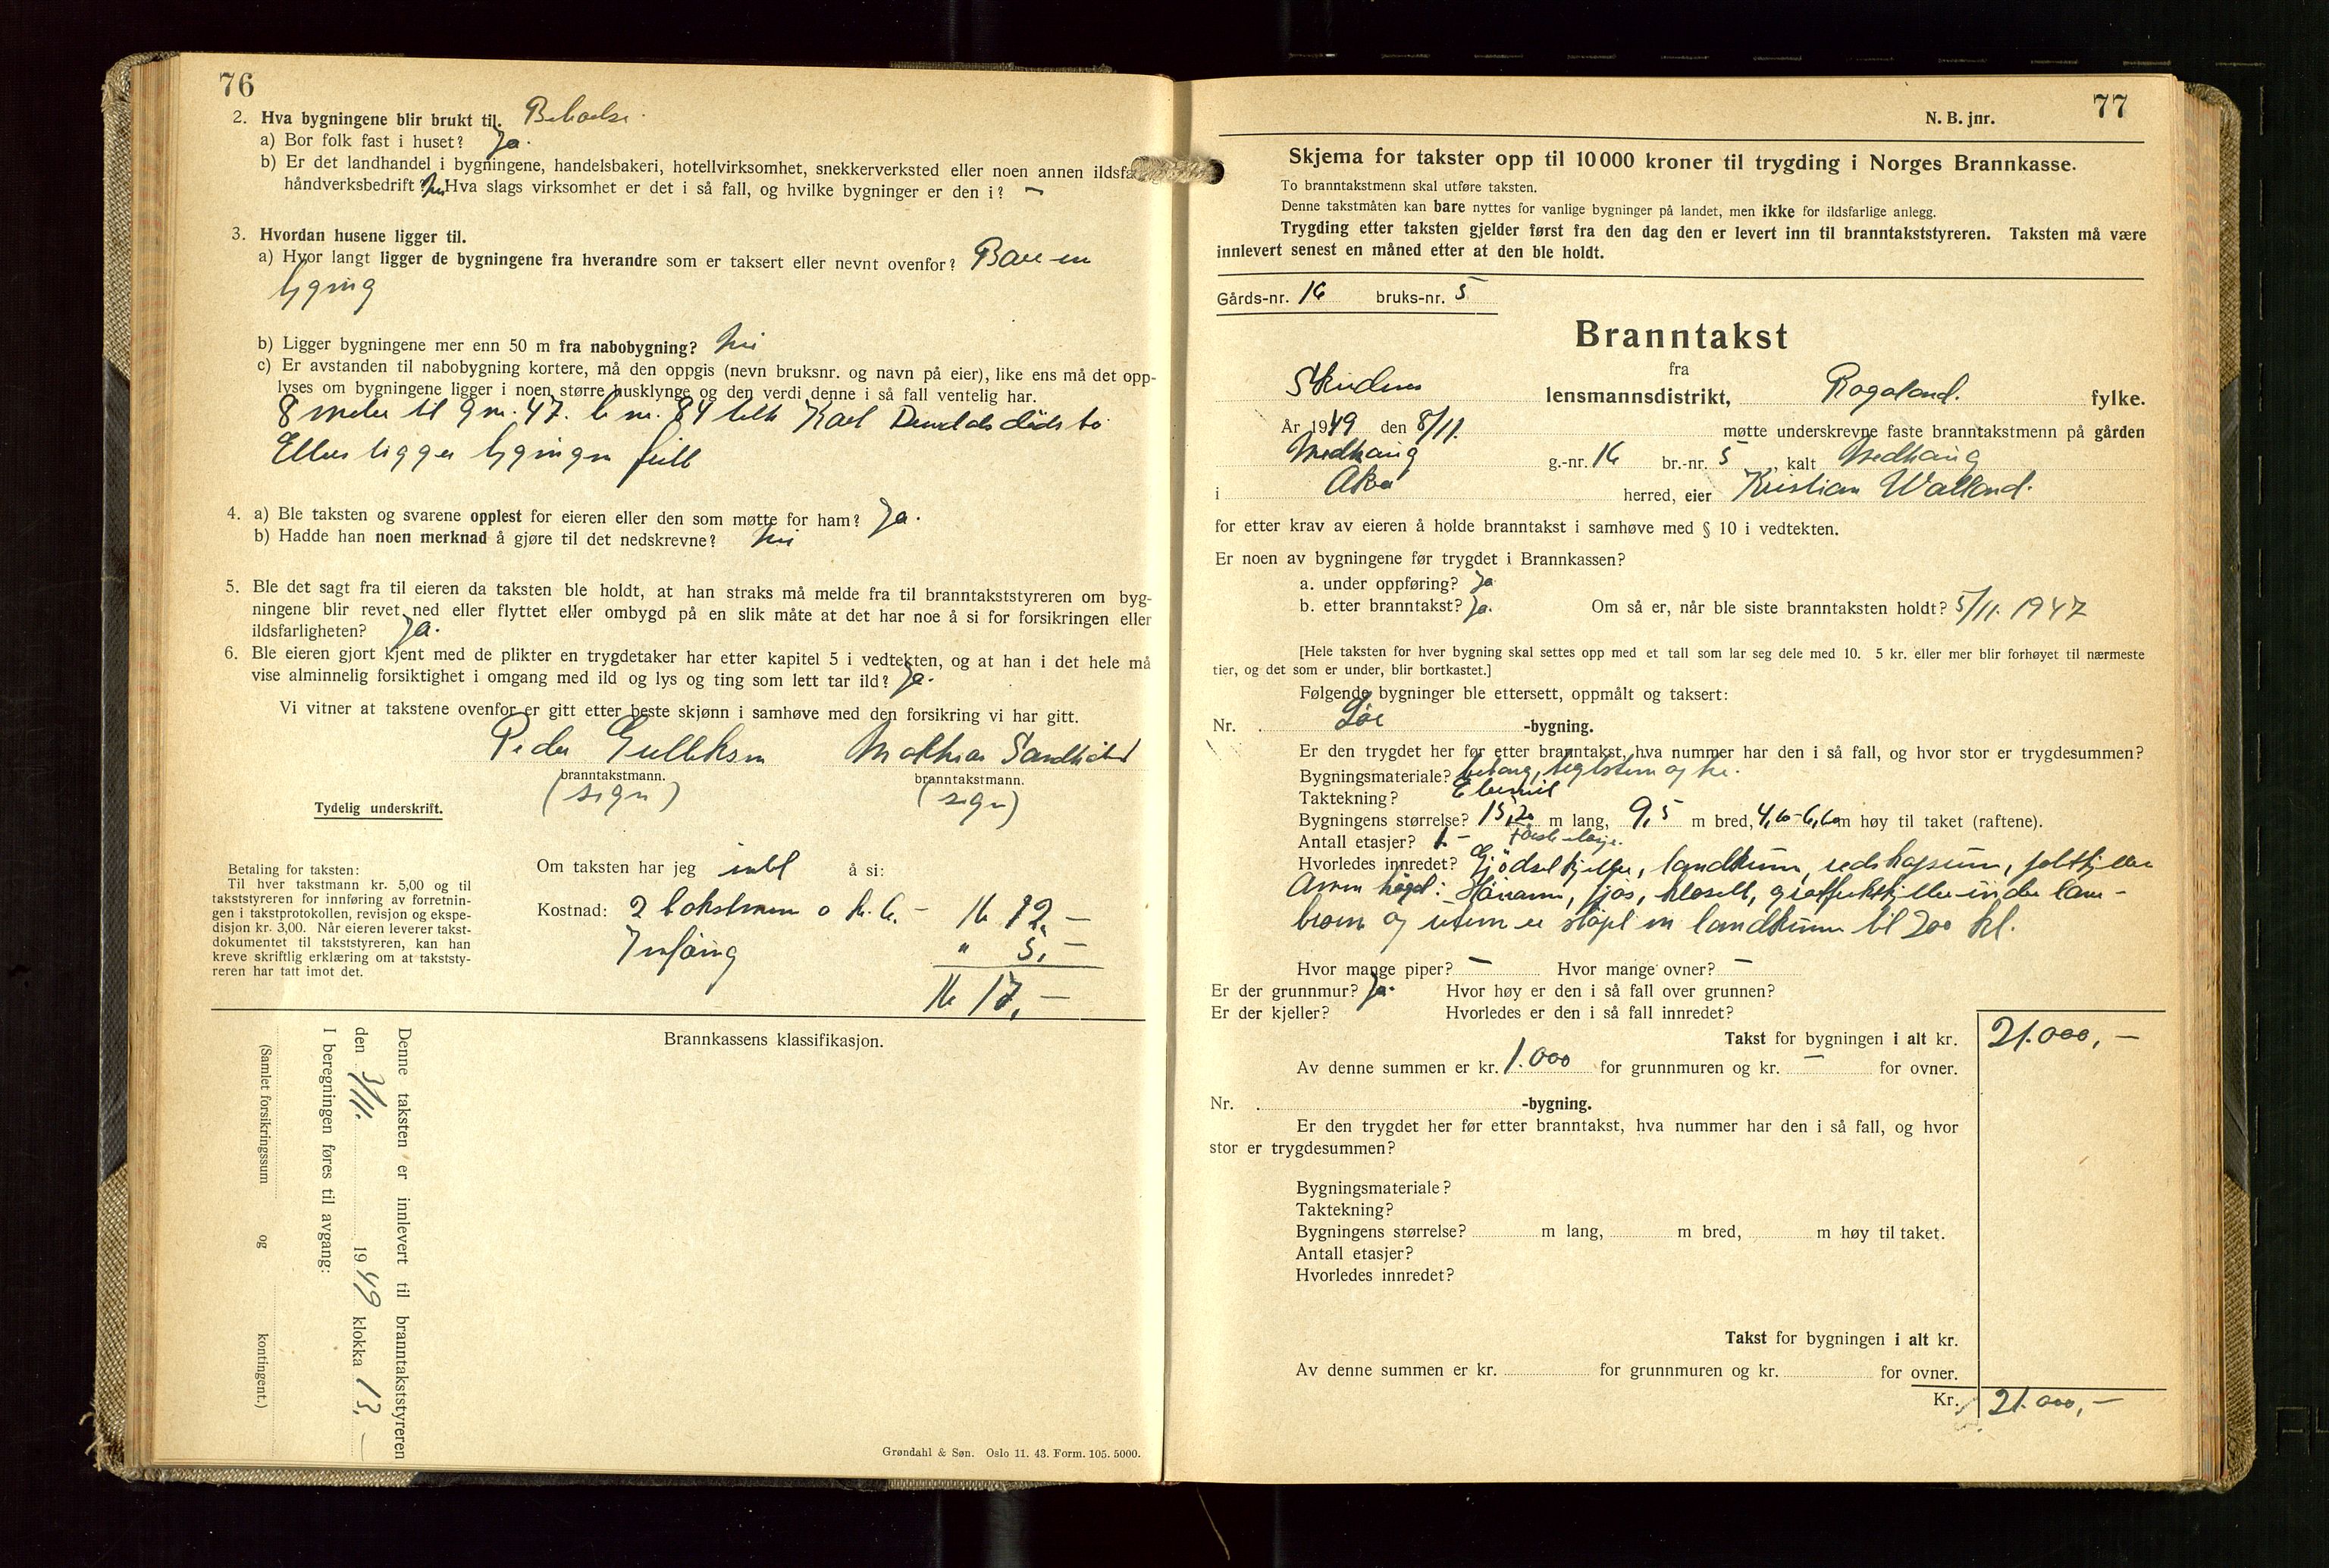 76
2. Hva bygningene blir brukt til. Beboelse.
a) Bor folk fast i huset? Ja.
b) Er det landhandel i bygningene, handelsbakeri, hotellvirksomhet, snekkerverksted eller noen annen ildsfa
håndverksbedrift? Nei Hva slags virksomhet er det i så fall, og hvilke bygninger er den i? —
3. Hvordan husene ligger til.
a) Hvor langt ligger de bygningene fra hverandre som er taksert eller nevnt ovenfor? Bare en
bygning
b) Ligger bygningene mer enn 50 m fra nabobygning? Nei
c) Er avstanden til nabobygning kortere, må den oppgis (nevn bruksnr. og navn på eier), like ens må det opp-
lyses om bygningene ligger i noen større husklynge og den verdi denne i så fall ventelig har.
8 meter til g.nr. 47. b.nr. 84 Karl dødsbo
Ellers ligger bygningen fritt
4. a) Ble taksten og svarene opplest for eieren eller den som møtte for ham? Ja.
b) Hadde han noen merknad å gjøre til det nedskrevne? Nei
5. Ble det sagt fra til eieren da taksten ble holdt, at han straks må melde fra til branntakststyreren om byg-
ningene blir revet ned eller flyttet eller ombygd på en slik måte at det har noe å si for forsikringen eller
ildsfarligheten? Ja.
6. Ble eieren gjort kjent med de plikter en trygdetaker har etter kapitel 5 i vedtekten, og at han i det hele må
vise alminnelig forsiktighet i omgang med ild og lys og ting som lett tar ild? Ja.
Vi vitner at takstene ovenfor er gitt etter beste skjønn i samhøve med den forsikring vi har gitt.
Peder Gulliksen Mathias Sandhåland
branntakstmann. branntakstmann.
(sign) (sign)
Tydelig underskrift.
Betaling for taksten:
Til hver takstmann kr. 5,00 og til
takststyreren for innføring av forretnin-
gen i takstprotokollen, revisjon og ekspe-
disjon kr. 3,00. Når eieren leverer takst-
dokumentet til takststyreren, kan han
kreve skriftlig erklæring om at takststy-
reren har tatt imot det.
Om taksten har jeg intet å si:
Kostnad: 2 takstmenn kr 12,—
Innføring " 5,—
kr 17,—
Brannkassens klassifikasjon.
Denne taksten er innlevert til branntakststyreren
den 3/11. 1949 klokka 13,—
I beregningen føres til avgang:
(Samlet forsikringssum og kontingent.)
Grøndahl & Søn. Oslo 11. 43. Form. 105. 5000.
77
N. B. jnr.
Skjema for takster opp til 10 000 kroner til trygding i Norges Brannkasse.
To branntakstmenn skal utføre taksten.
Denne takstmåten kan bare nyttes for vanlige bygninger på landet, men ikke for ildsfarlige anlegg.
Trygding etter taksten gjelder først fra den dag den er levert inn til branntakststyreren. Taksten må være
innlevert senest en måned etter at den ble holdt.
Gårds-nr. 16 bruks-nr. 5
Branntakst
fra
Skudenes lensmannsdistrikt, Rogaland. fylke.
År 1949 den 8/11. møtte underskrevne faste branntakstmenn på gården
Medhaug g.-nr. 16 br.-nr. 5, kalt Medhaug
i Åkra herred, eier Kristian Walland.
for etter krav av eieren å holde branntakst i samhøve med § 10 i vedtekten.
Er noen av bygningene før trygdet i Brannkassen?
a. under oppføring? Ja
b. etter branntakst? Ja. Om så er, når ble siste branntaksten holdt? 5/11. 1947
[Hele taksten for hver bygning skal settes opp med et tall som lar seg dele med 10. 5 kr. eller mer blir forhøyet til nærmeste
tier, og det som er under, blir bortkastet.]
Følgende bygninger ble ettersett, oppmålt og taksert:
Nr. Løe -bygning.
Er den trygdet her før etter branntakst, hva nummer har den i så fall, og hvor stor er trygdesummen?
Bygningsmateriale? betong, teglstein og tre.
Taktekning? Eternit
Bygningens størrelse? 15,20 m lang, 9,5 m bred, 4,60-6,60 m høy til taket (raftene).
Antall etasjer? 1 — Første etasje.
Hvorledes innredet? Gjødselkjeller, landkum, redskapsrum,
Annen høyde: Hørum, fjøs, klosett, grøtfruktkjeller under låve-
broen og utenom er støpt en landkum til 200 hl.
Hvor mange piper? — Hvor mange ovner? —
Er der grunnmur? Ja. Hvor høy er den i så fall over grunnen?
Er der kjeller? Hvorledes er den i så fall innredet?
Takst for bygningen i alt kr. 21.000,—
Av denne summen er kr. 1.000 for grunnmuren og kr. — for ovner.
Nr. -bygning.
Er den trygdet her før etter branntakst, hva nummer har den i så fall, og hvor
stor er trygdesummen?
Bygningsmateriale?
Taktekning?
Bygningens størrelse? m lang, m bred, m høy til taket.
Antall etasjer?
Hvorledes innredet?
Takst for bygningen i alt kr.
Av denne summen er kr. for grunnmuren og kr. for ovner.
Kr. 21.000,—